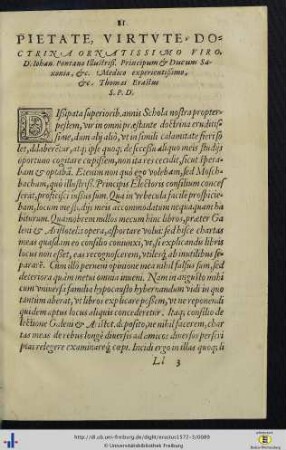 81.
PIETATE, VIRTVTE, DO-
CTRINA ORNATISSIMO VIRO,
D. Iohan. Pontano Illustriss. Principum & Ducum Sa-
xoniæ, &c. Medico experientissimo,
&c. Thomas Erastus
S. P. D.
Dissipata superioribus annis Schola nostra propter
pestem, vir in omni præstante doctrina eruditissi-
me, dum alij aliò, vt in simili calamitate fieri so-
let, dilaberētur, atq; ipse quoq; de secessu aliquo meis studijs
oportuno cogitare cœpissem, non ita res cecidit, sicut spera-
bam & optabā. Etenim non quò ego volebam, sed Mosch-
bachum, quò illustriss. Principis Electoris consilium concef
serat, proficisci iussus sum. Qua in vrbecula facilè prospicie-
bam, locum me studijs meis accommodatum nequaquam ha
biturum. Quamobrem nullos mecum hinc libros, præter Gale
ni & Aristotelis opera, asportare volui: sed hisce chartas
meas quasdam eo consilio coniunxi, vt, si explicandis libris
locus non esset, eas recognoscerem, vtilesq; ab inutilibus se-
pararē. Cùm illò peruenissem opinione mea nihil falsus sum, sed
deteriora quàm metui omnia inueni. Nam in angusto mihi
cum vniuersa familia hypocausto hybernandum vidi in quo
tantùm aberat, vt libros explicare possem, vt ne reponendi
quidem aptus locus aliquis concederetur. Itaq; consilio de
lectione Galeni & Aristot. deposito, ne nihil facerem, char-
tas meas de rebus longè diuersis ad amicos diuersos perscri
ptas relegere examinareq́; cœpi. Incidi ergo in illas quoq; li
Ll 3
http://dl.ub.uni-freiburg.de/diglit/erastus1572-3/0089
© Universitätsbibliothek Freiburg